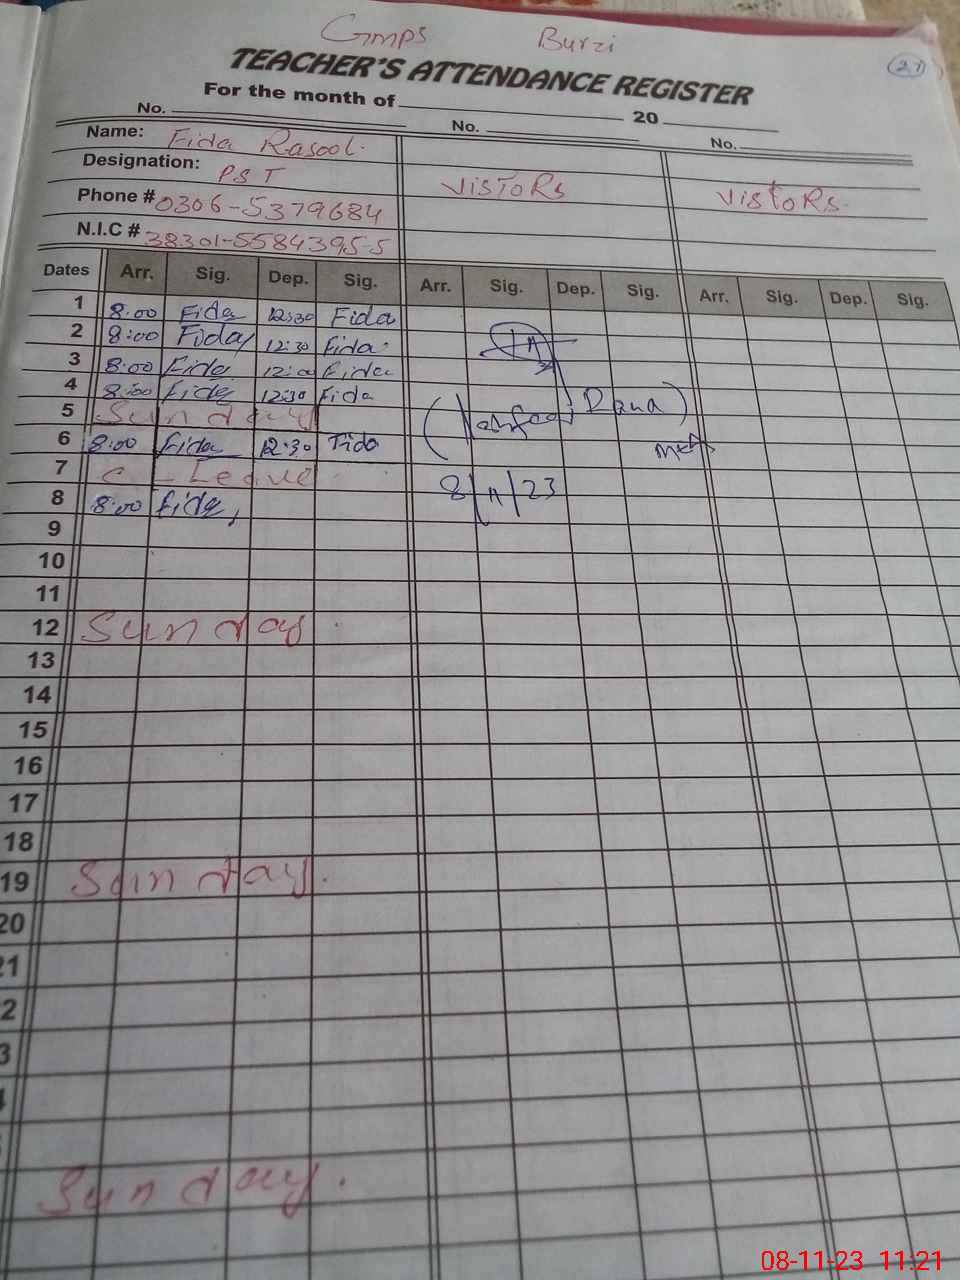 Gmps Burzi
(21)
TEACHER'S ATTENDANCE REGISTER
For the month of 20
No. No. No.
Name: Fida Rasool.
Designation: PST
Phone # 0306-5379684
N.I.C # 38301-5584395-5
VisToRs
VistoRs.
Dates Arr. Sig. Dep. Sig. Arr. Sig. Dep. Sig. Arr. Sig. Dep. Sig.
1 8:00 Fida 12:30 Fida
2 8:00 Fida 12:30 Fida
3 8:00 Fida 12:00 Fida
4 8:00 Fida 12:30 Fida
5 Sunday
6 8:00 Fida 12:30 Fida
7 C_Leave
8 8:00 Fida,
Rana)
MEA
8/11/23
9
10
11
12 Sunday.
13
14
15
16
17
18
19 Sunday.
20
21
2
3
Sunday.
08-11-23 11:21